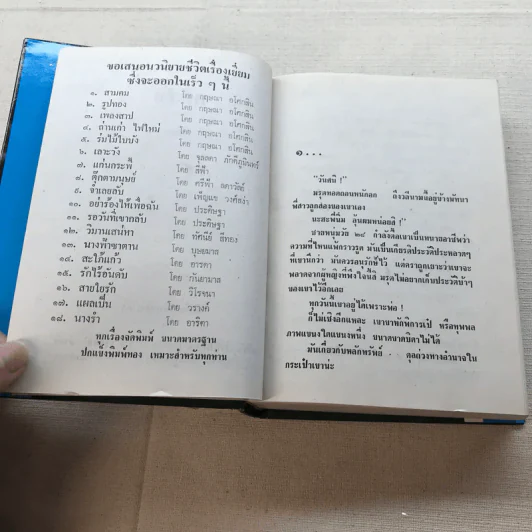 ขอเสนอนวนิยายชีวิตเรื่องเยี่ยม
ซึ่งจะออกในเร็ว ๆ นี้
๑. สามคม โดย กฤษณา อโศกสิน
๒. รูปทอง โดย กฤษณา อโศกสิน
๓. เพลงสาป โดย กฤษณา อโศกสิน
๔. ถ่านเก่า ไฟใหม่ โดย กฤษณา อโศกสิน
๕. ร่มไม้ใบบัง โดย กฤษณา อโศกสิน
๖. เลวะวัง โดย จุลลดา ภักดีภูมินทร์
๗. แก่นกระพี้ โดย สีฟ้า
๘. ตุ๊กตามนุษย์ โดย ศรีฟ้า ลดาวัลย์
๙. จำเลยรัก โดย เพ็ญแข วงศ์สง่า
๑๐. อย่าร้องไห้เพื่อฉัน โดย ประดิษฐา
๑๑. รอวันที่เขากลับ โดย ประดิษฐา
๑๒. วิมานเสน่หา โดย ทัศนีย์ สีทอง
๑๓. นางฟ้าซาตาน โดย บุษยมาส
๑๔. สะใภ้แก้ว โดย อาริตา
๑๕. รักไร้อันดับ โดย กันยามาส
๑๖. สายใยรัก โดย วิโรจนา
๑๗. แผลเป็น โดย วรางค์
๑๘. นางรำ โดย อาริตา
ทุกเรื่องจัดพิมพ์ ขนาดมาตรฐาน
ปกแข็งพิมพ์ทอง เหมาะสำหรับทุกท่าน
๑...
"วันสนิ !"
มรุตทอดถอนหนักอก ถึงวลีนามนี้อยู่บ้างทีนา
พี่สาวลูกสองของเขาเอง
มะสะพี่นิ่ม อุ้มยมหน่อยสิ !"
ชายหนุ่มวัย ๒๔ กำลังถือเบาเป็นทนายลอารีพ่ว่า
ความที่ไหนแน่กราวรูด มันเป็นเกียรติประวัติประหลาดๆ
ที่เขานึกว่า มันควรอนุรักษ์ไว้ แต่คราถูกเยาะว่าเขาจะ
พลาดจากผู้หญิงที่พึงใจนี้สิ มรุตไม่อยากเก็บประวัติบ้าๆ
ของเขาไว้อีกเลย
ทุกวันนี้เขาอยู่ได้เพราะพ่อ !
ก็ไม่เชิงอีกแหละ เขาขาพักพิการเป๋ หรือทุพพล
ภาพแขนงใดแขนงหนึ่ง ขนาดขาดบิดาไม่ได้
มันเกี่ยวกับหลักทรัพย์ ดุลถ่วงทางอำนาจใน
กระเป๋าเขาน่ะ